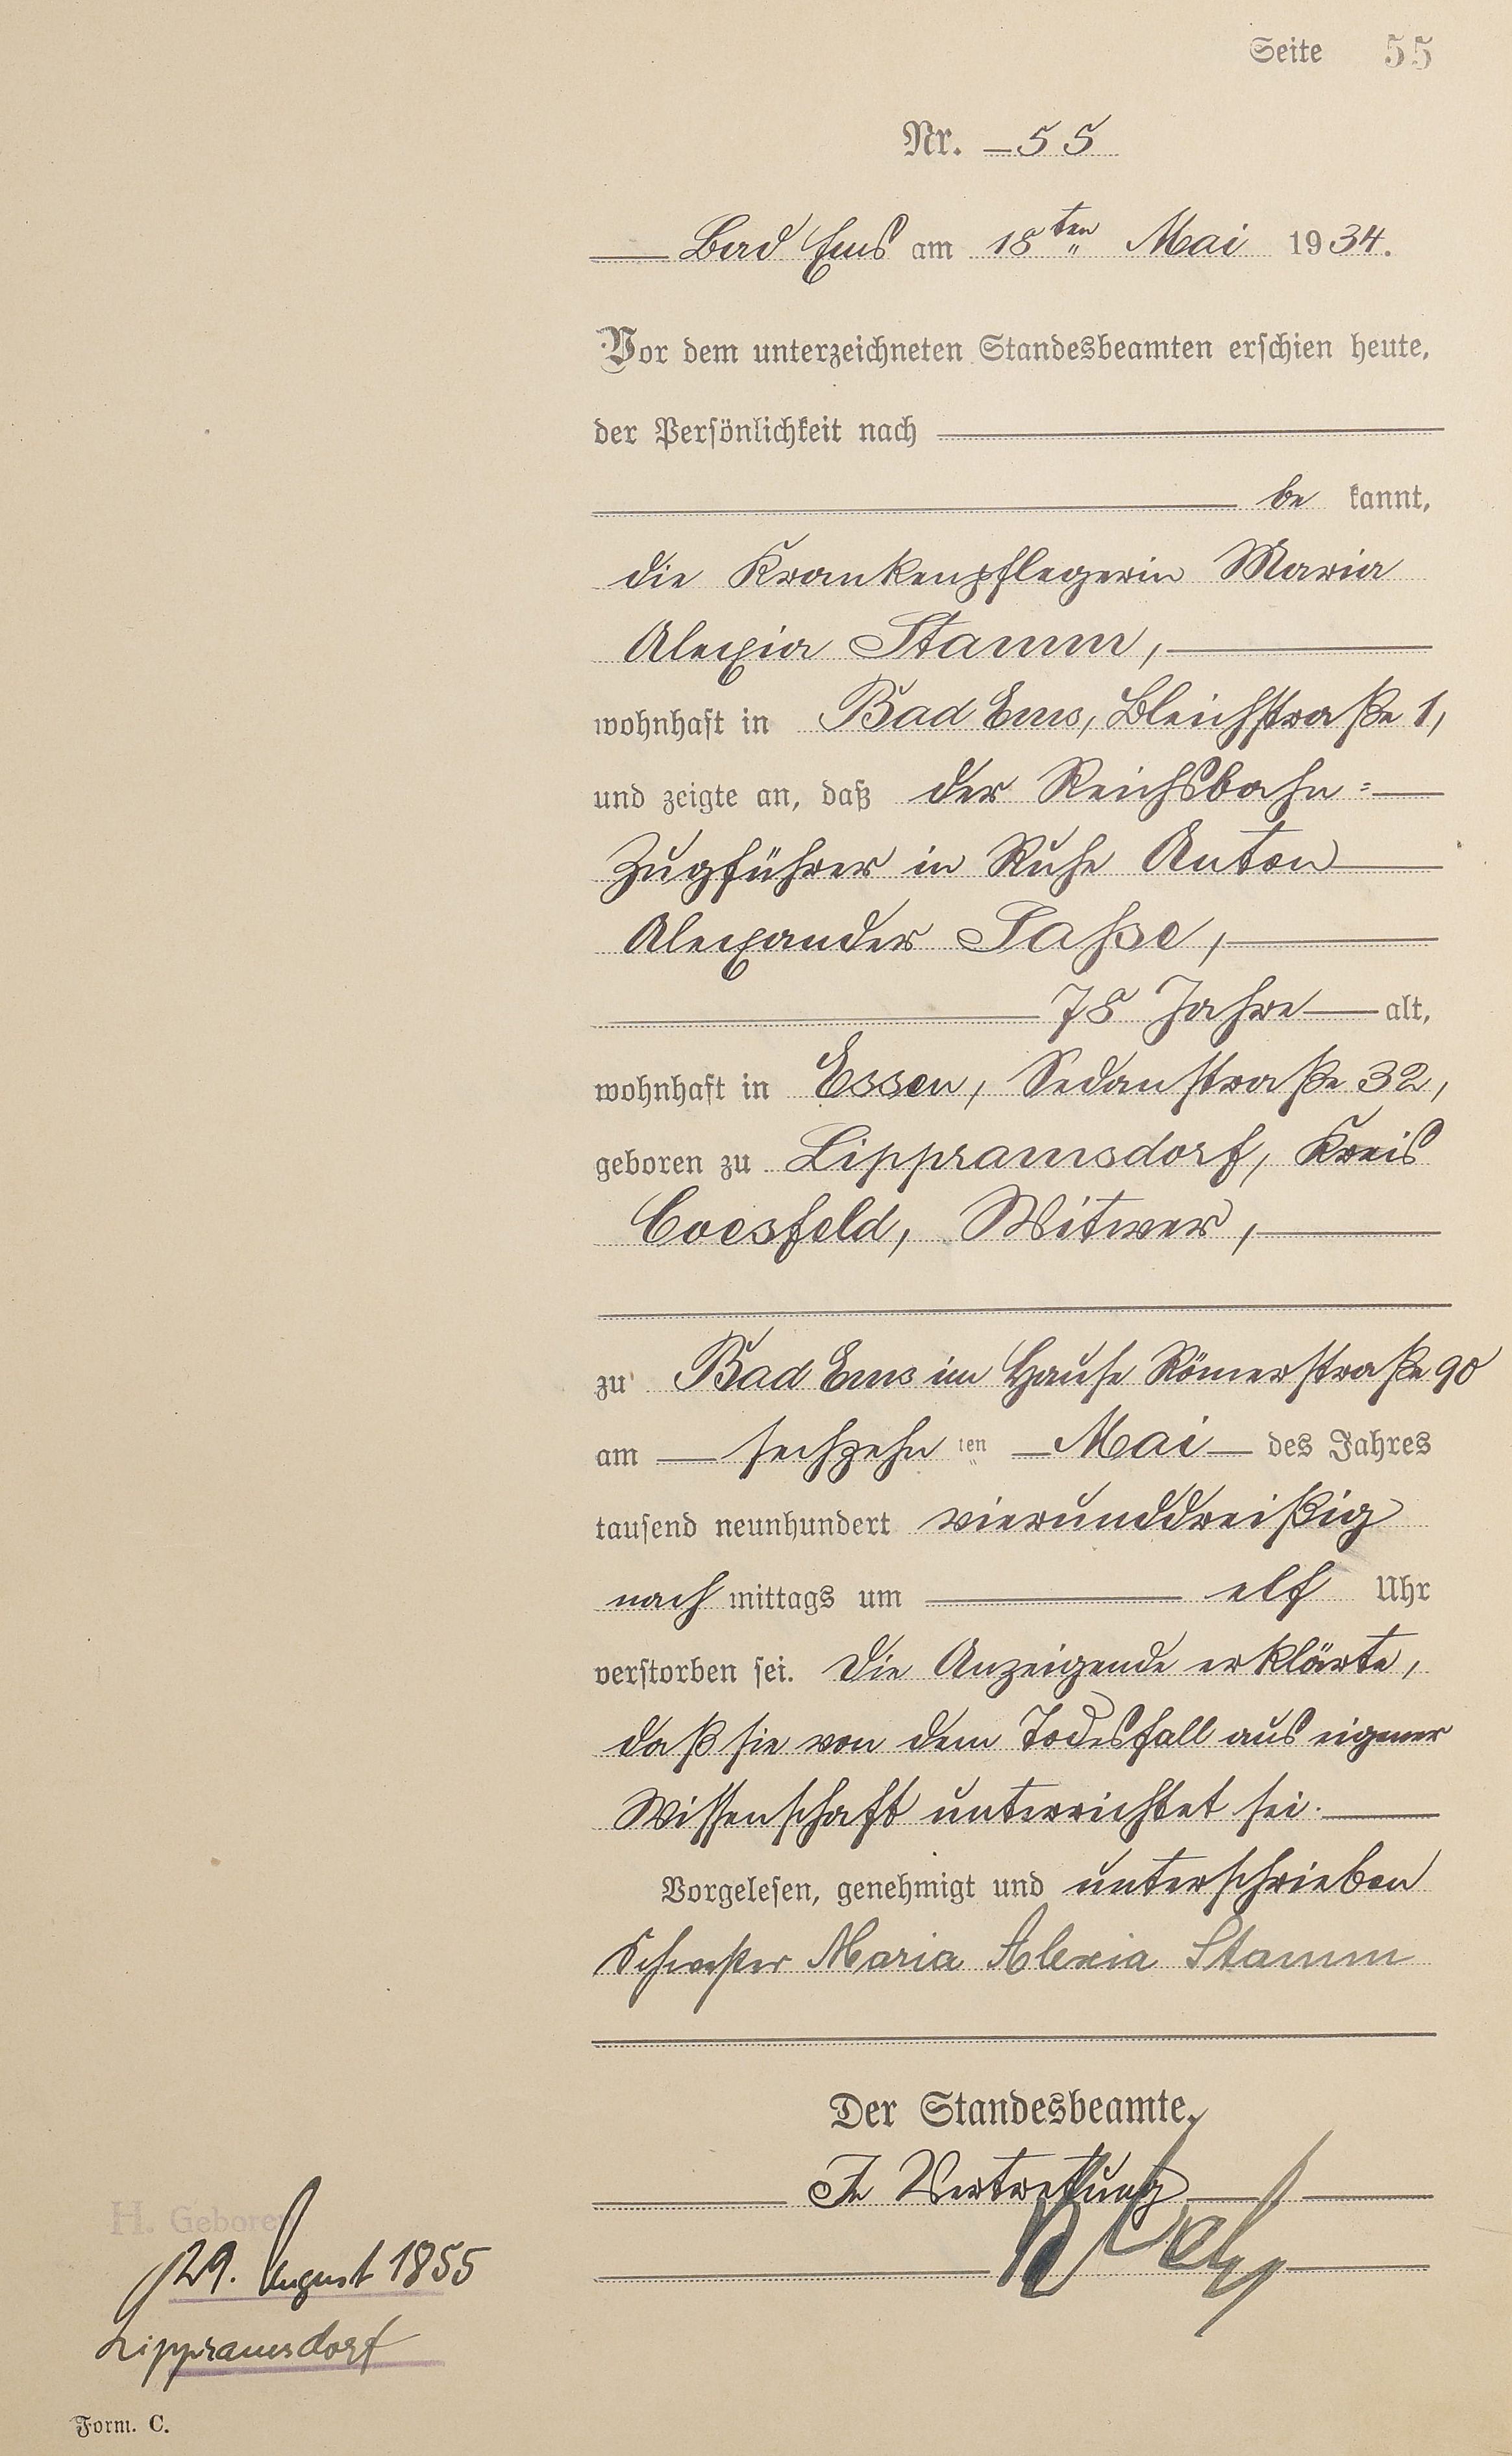 Seite 55
Nr. 55
Bad Ems am 18ten Mai 1934.
Vor dem unterzeichneten Standesbeamten erschien heute,
der Persönlichkeit nach
be kannt,
die Krankenpflegerin Maria
Alexia Stamm,
wohnhaft in Bad Ems, Bleichstraße 1,
und zeigte an, daß der Reichsbahn=
Zugführer in Ruhe Anton
Alexander Sasse,
78 Jahre alt,
wohnhaft in Essen, Sedanstraße 32,
geboren zu Lippramsdorf, Kreis
Coesfeld, Witwer,
zu Bad Ems im Hause Römerstraße 90
am sechzehn ten Mai des Jahres
tausend neunhundert vierunddreißig
nach mittags um elf Uhr
verstorben sei. Die Anzeigende erklärte,
daß sie von dem Todesfall aus eigener
Wissenschaft unterrichtet sei.
Vorgelesen, genehmigt und unterschrieben
Schwester Maria Alexia Stamm
Der Standesbeamte.
In Vertretung
H. Geboren
29. August 1855
Lippramsdorf
Form. C.